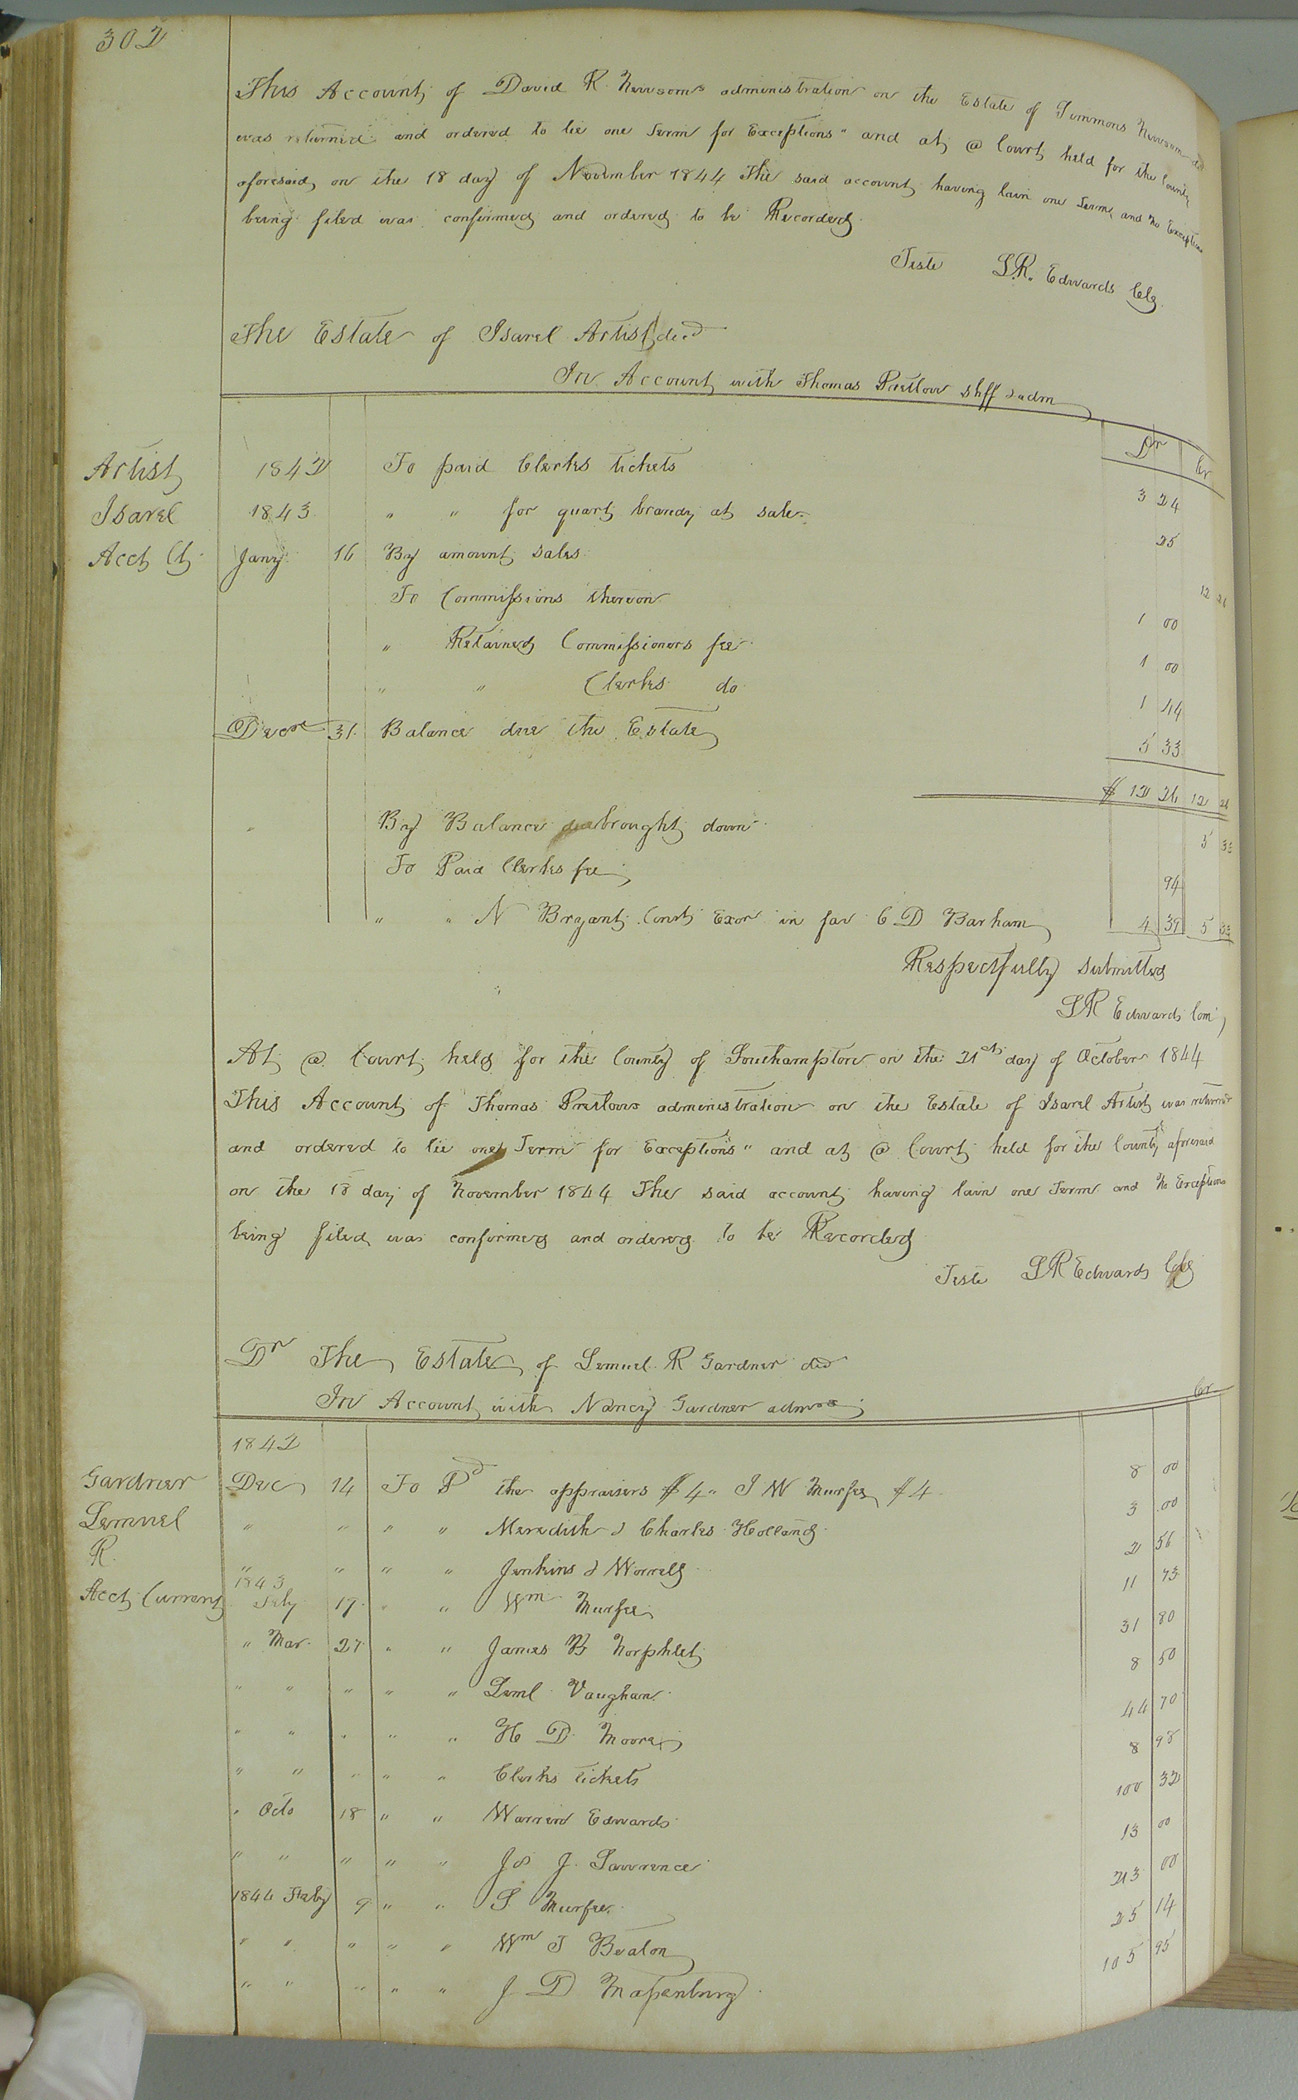 302
This Account of David R Newsoms administration on the Estate of Timmons Newsom decd
was returned and ordered to lie one Term for Exceptions" and at @ Court held for the County
aforesaid, on the 18 day of November 1844 The said account having lain one Term and No Exceptions
being filed was confirmed and ordered to be Recorded
Teste L.R. Edwards Clk.
The Estate of Isarel Artist decd
In Account with Thomas Pretlow Shff & adm
Dr Cr
Artist 1842 To paid Clerks tickets 3 24
Isarel 1843 " " for quart brandy at sale 25
Acct Ct Jany 16 By amount sales 12 26
To Commissions thereon 1 00
" Retained Commissioners fee 1 00
" " Clerks do 1 44
Decr 31 Balance due the Estate 5 33
$ 12 26 12 26
By Balance brought down 5 33
To Paid Clerks fee 94
" " N Bryant Const Exor in fav C D Barham 4 39 5 33
Respectfully submitted
L R Edwards Com
At @ Court held for the County of Southampton on the 21st day of October 1844
This Account of Thomas Pretlows administration on the Estate of Isarel Artist was returned
and ordered to lie one Term for Exceptions" and at @ Court held for the County aforesaid
on the 18 day of November 1844 The said account having lain one Term and No Exceptions
being filed was confirmed and ordered to be Recorded
Teste L R Edwards Clk
Dr The Estate of Lemuel R Gardner decd
In Account with Nancy Gardner admrx Cr
1842
Gardner Dec 14 To Pd the appraisers $4" J W Murfee $4 8 00
Lemuel " " " " Meredith & Charles Holland 3 00
R. " " " " Jenkins & Worrell 2 56
1843
Acct Current Feby 17 " " Wm Murfee 11 73
" Mar 27 " " James B Norphlet 31 80
" " " " " Leml Vaughan 8 50
" " " " " H D Moore 44 70
" " " " " Clerks tickets 8 98
" Octo 18 " " Warren Edwards 100 32
" " " " " Jos J. Lawrence 13 00
1844 Feby 9 " " S. Murfee 213 00
" " " " " Wm J Beaton 25 14
" " " " " J D Massenburg 105 95